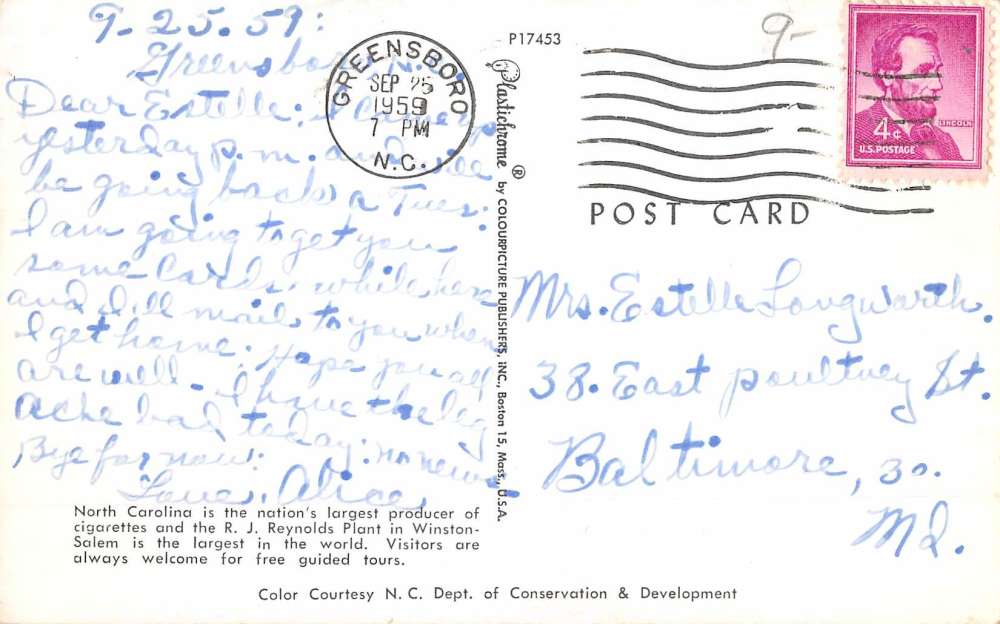 9-25.59:
Greensboro, N.C.
Dear Estelle: I
yesterday p.m. and will
be going back Tues.
I am going to get you
some cards while here
and I'll mail to you when
I get home. Hope you all
are well - I have the leg
ache bad today. no news
Bye for now.
Love, Alice
North Carolina is the nation's largest producer of
cigarettes and the R. J. Reynolds Plant in Winston-
Salem is the largest in the world. Visitors are
always welcome for free guided tours.
Color Courtesy N. C. Dept. of Conservation & Development
GREENSBORO
SEP 25
1959
7 PM
N.C.
P17453
Plastichrome® by COLOURPICTURE PUBLISHERS, INC., Boston 15, Mass., U.S.A.
9-
LINCOLN
4¢
U.S. POSTAGE
POST CARD
Mrs. Estelle Longwarth.
38. East poultney St.
Baltimore, 30.
Md.